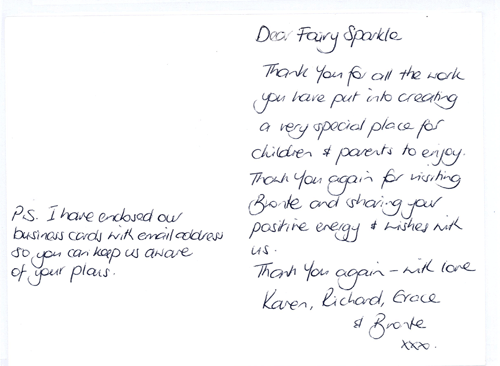 Dear Fairy Sparkle
Thank You for all the work
you have put into creating
a very special place for
children & parents to enjoy.
Thank You again for visiting
Bronte and sharing your
positive energy & wishes with
us.
Thank You again - with love
Karen, Richard, Grace
& Bronte
xxx.
P.S. I have enclosed our
business cards with email address
so you can keep us aware
of your plans.